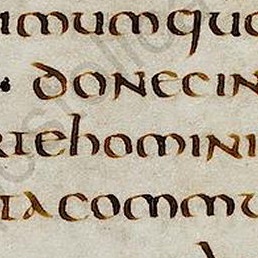 imumquo
· donecin
rtehomini
tacommu